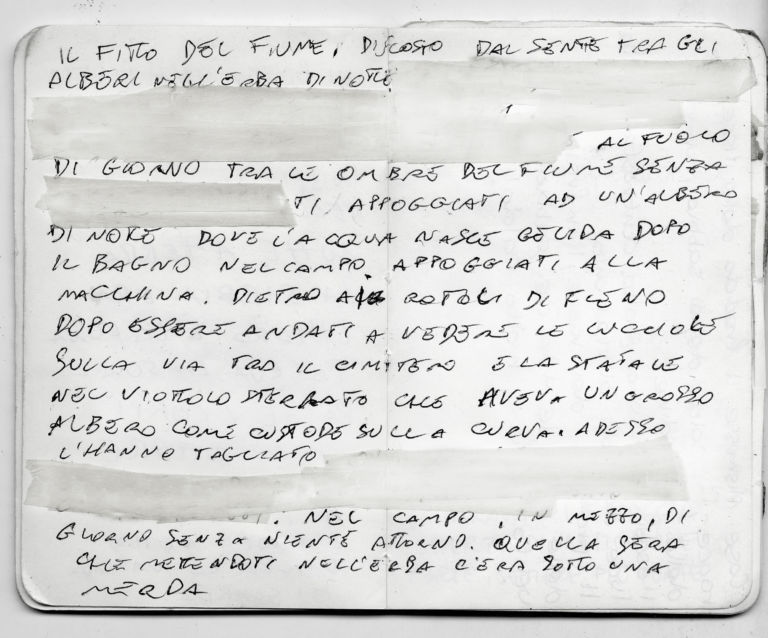 IL FITTO DEL FIUME, DISCOSTO DAL SENTE TRA GLI
ALBERI NELL'ERBA DI NOTTE
AL FUOCO
DI GIORNO TRA LE OMBRE DEL FIUME SENZA
TI APPOGGIATI AD UN'ALBERO
DI NOCE DOVE L'ACQUA NASCE GELIDA DOPO
IL BAGNO NEL CAMPO. APPOGGIATI ALLA
MACCHINA. DIETRO AI ROTOLI DI FIENO
DOPO ESSERE ANDATI A VEDERE LE LUCCIOLE
SULLA VIA TRA IL CIMITERO E LA STATALE
NEL VIOTTOLO STERRATO CHE AVEVA UN GROSSO
ALBERO COME CUSTODE SULLA CURVA. ADESSO
L'HANNO TAGLIATO
. NEL CAMPO, IN MEZZO, DI
GIORNO SENZA NIENTE ATTORNO. QUELLA SERA
CHE METTENDOTI NELL'ERBA C'ERA SOTTO UNA
MERDA